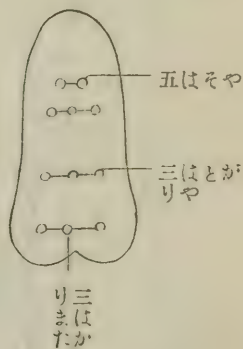 五はそや
三はとが
りや
三はか
りまた